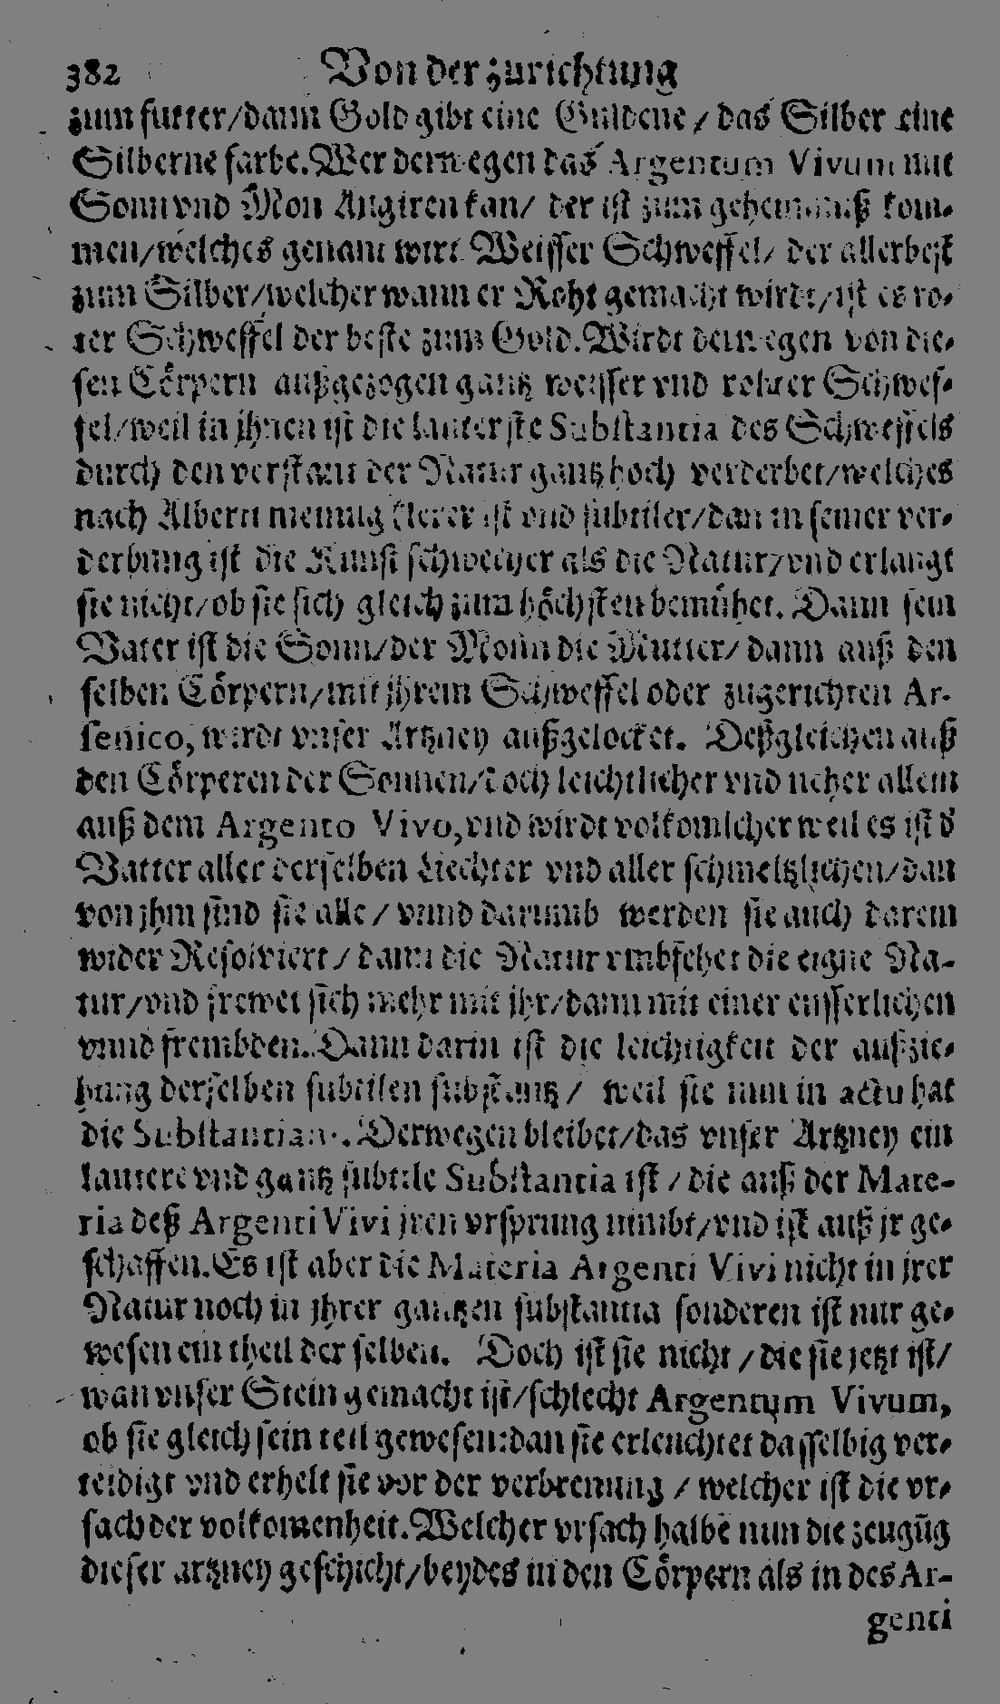 382 Von der zurichtung
zum futter/dann Gold gibt eine Guldene/das Silber eine
Silberne farbe. Wer derwegen das Argentum Vivum mit
Sonn vnd Mon Angiren kan/ der ist zum geheimnuß kom-
men/welches genant wirt Weisser Schweffel/ der allerbest
zum Silber/welcher wann er Roht gemacht wirdt/ist es ro-
ter Schweffel der beste zum Gold. Wirdt derwegen von die-
sen Cörpern außgezogen gantz weisser vnd rohter Schwef-
fel/weil in jhnen ist die lauterste Substantia des Schweffels
durch den verstant der Natur gantz hoch verderbet/welches
nach Alberti meinung klerer ist vnd subtiler/dan in seiner ver-
derbung ist die Kunst schwecher als die Natur/vnd erlangt
sie nicht/ob sie sich gleich zum höchsten bemühet. Dann sein
Vater ist die Sonn/der Monn die Mutter/ dann auß den
selben Cörpern/mit jhrem Schweffel oder zugerichten Ar-
senico, wirdt vnser Artzney außgelocket. Deßgleichen auß
den Cörperen der Sonnen/doch leichtlicher vnd neher allein
auß dem Argento Vivo, vnd wirdt volkomlicher weil es ist d̕
Vatter aller derselben Liechter vnd aller schmeltzlichen/dan
von jhm sind sie alle/ vnnd darumb werden sie auch darein
wider Resolviert/dann die Natur vmbfehet die eigne Na-
tur/vnd frewet sich mehr mit jhr/dann mit einer eusserlichen
vnnd frembden. Dann darin ist die leichtigkeit der außzie-
hung derselben subtilen substantz/ weil sie nun in actu hat
die Substantiam. Derwegen bleibet/das vnser Artzney ein
lautere vnd gantz subtile Substantia ist/die auß der Mate-
ria deß Argenti Vivi jren vrsprung nimbt/vnd ist auß jr ge-
schaffen. Es ist aber die Materia Argenti Vivi nicht in jrer
Natur noch in jhrer gantzen substantia sonderen ist nur ge-
wesen ein theil der selben. Doch ist sie nicht/die sie jetzt ist/
wan vnser Stein gemacht ist/schlecht Argentum Vivum,
ob sie gleich sein teil gewesen: dan sie erleuchtet dasselbig ver-
teidigt vnd erhelt sie vor der verbrenung/ welcher ist die vr-
sach der volkomenheit. Welcher vrsach halbe nun die zeugūg
dieser artzney geschicht/beydes in den Cörpern als in des Ar-
genti